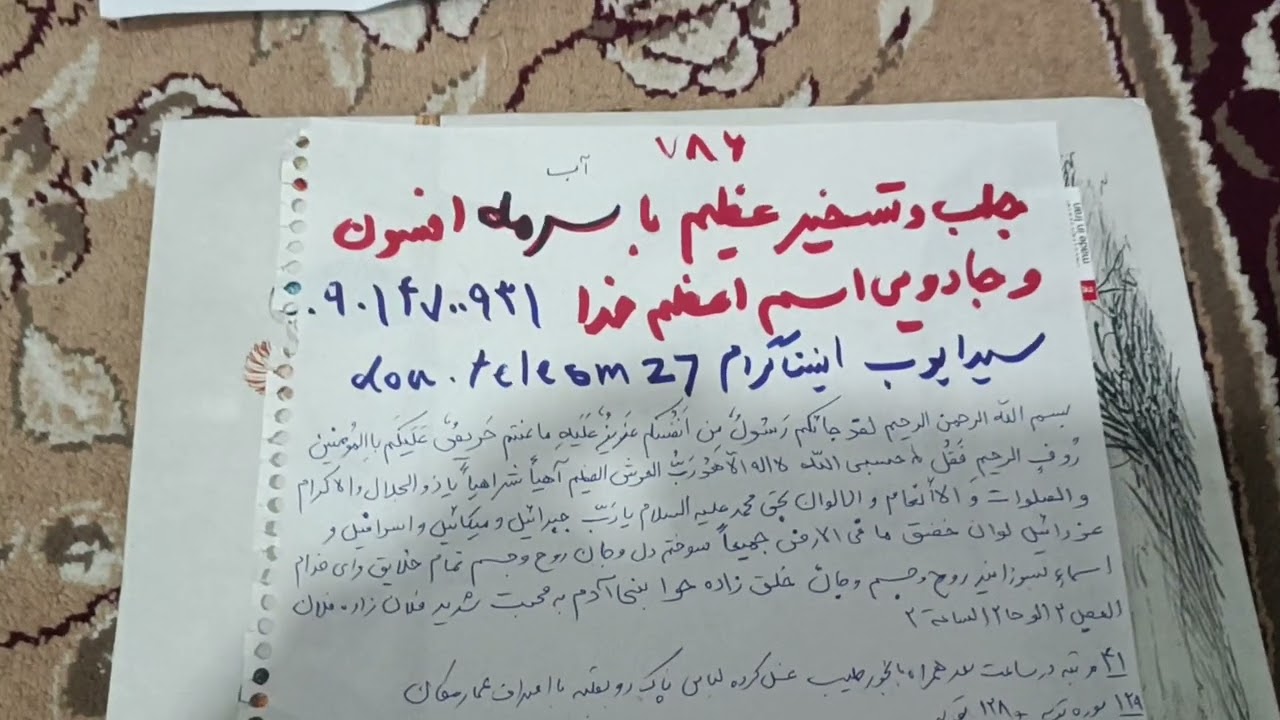 ۷۸۶
آب
جلب و تسخیر عظیم با سرمه افسون
و جادویی اسم اعظم خدا ۰۹۰۱۴۷۰۰۹۳۱
سیدایوب اینستاگرام don.telecom27
بسم الله الرحمن الرحیم لقد جائکم رَسُولٌ مِن اَنفُسِکُم عَزیزٌ عَلَیهِ ما عنتم حَریصٌ عَلَیکُم بِالمُومِنین
رَوُفٌ الرحیم فَقُل حسبی الله لااله الّا هُوَ رَبُّ العرش العظیم آهیاً شراهیاً یا ذوالجلال والاکرام
و الصلوات وَ الاَنعام و الالوان بحق محمد علیه السلام یا رَبّ جبرائیل و میکائیل و اسرافیل و
عزرائیل لوان ما فی الارض جمیعاً سوختم دل و جان روح و جسم تمام خلایق وای خدام
اسماء بسوزانید روح و جسم و جان خلق زاده حوا بنی آدم به محبت شدید فلان زاده فلان
العجل ۲ الوحا ۲ الساعة ۲
۴۱ مرتبه در ساعت سعد همراه با بخور طیب غسل کرده لباس پاک رو بقبله با اعمار مکان
۱۲۹ سوره توبه ۱۲۸